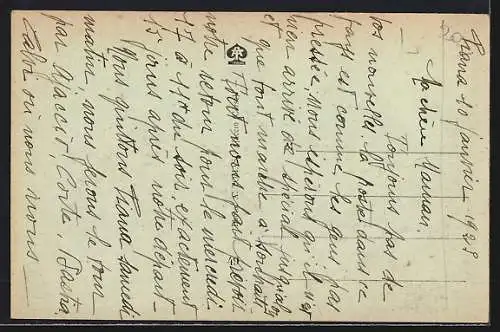 Piana 10 Janvier 1928
Ma chère Maman.
Toujours pas de
vos nouvelles. La poste dans ce
pays est comme les gens pas
pressée. Nous espérons qu'il n'est
rien arrivé de spécial
et que tout marche à souhait
notre retour pour le mercredi
17 à 11h du soir, exactement
15 jours après notre départ
Nous quittons Piana samedi
matin, nous ferons le tour
par Ajaccio, Corte, Bastia,
Calvi où nous